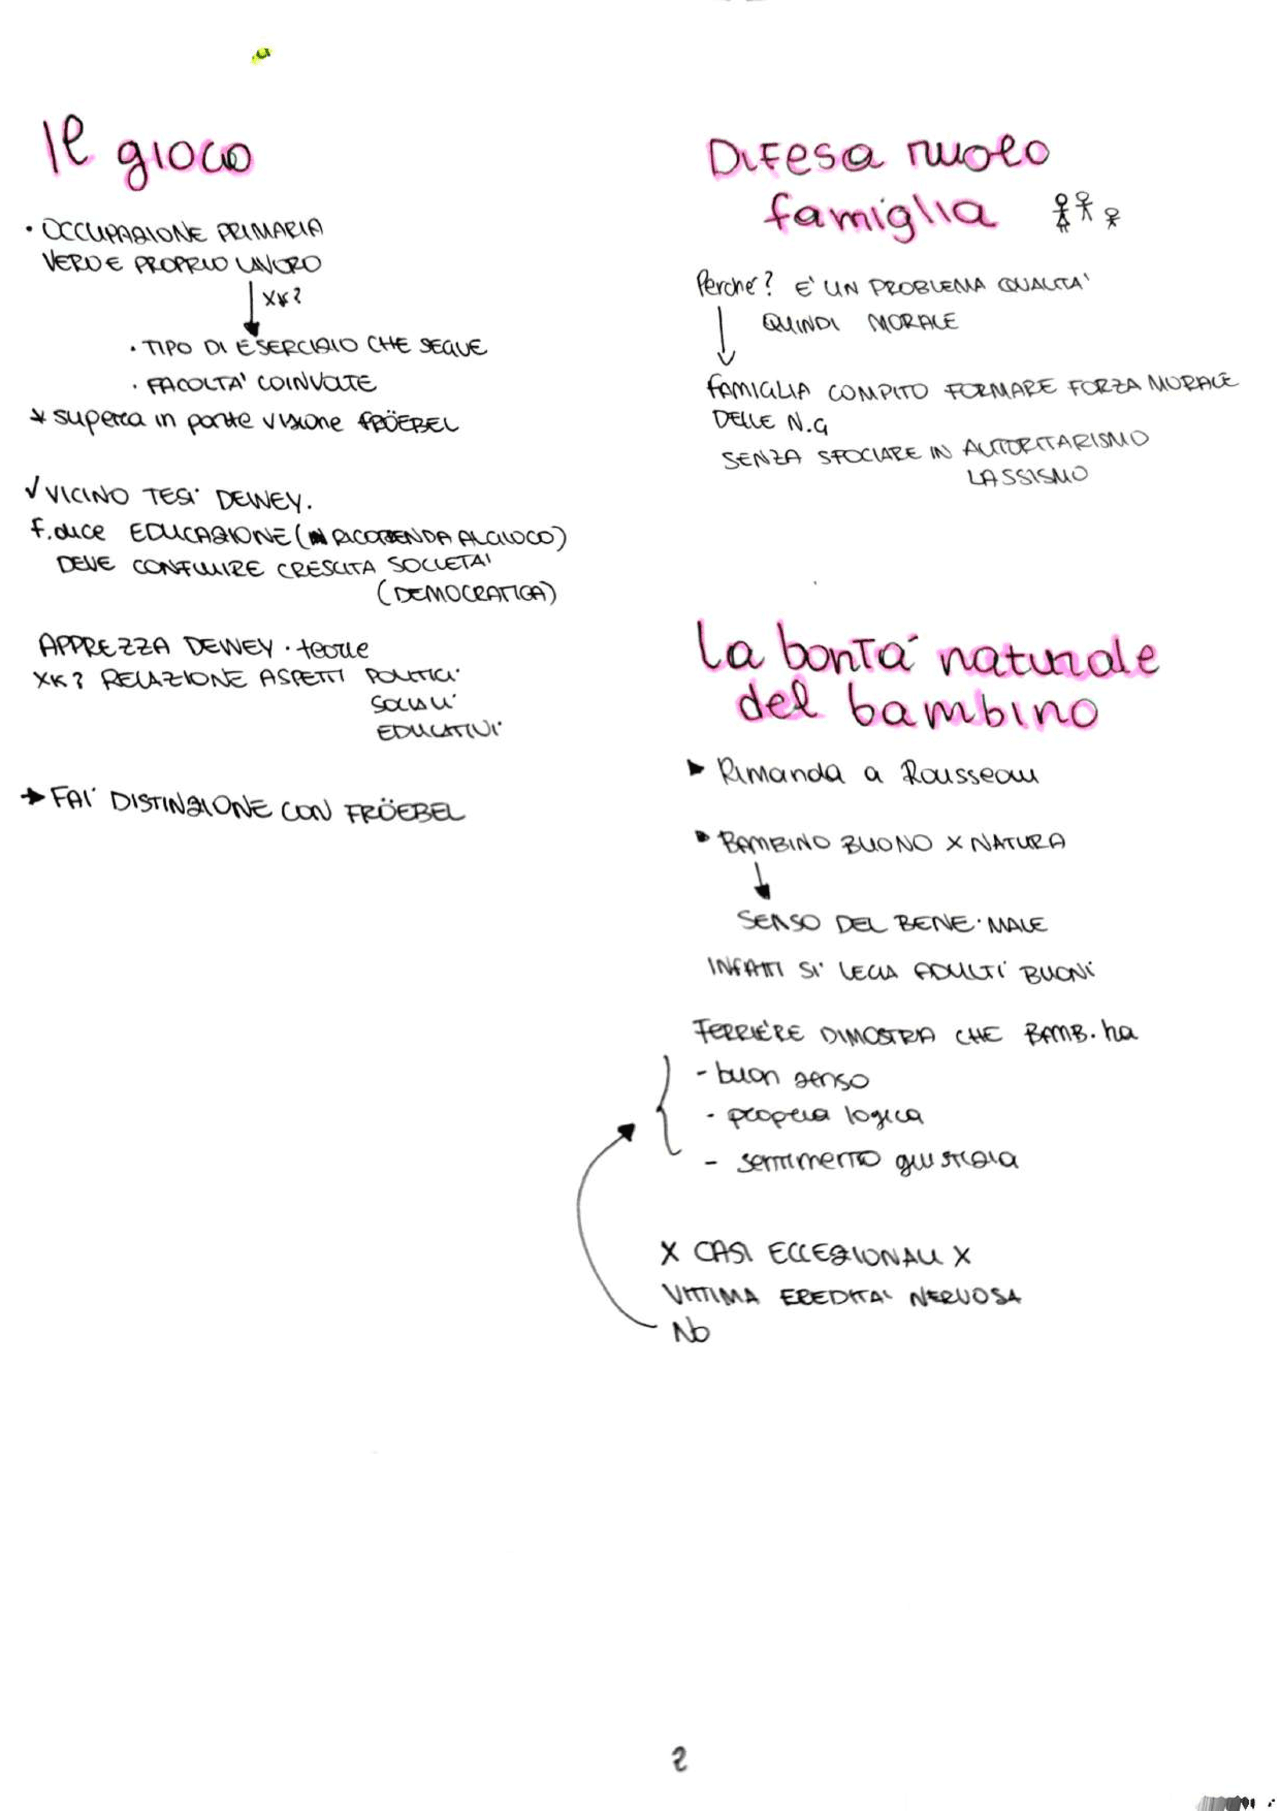 Il gioco
• OCCUPAZIONE PRIMARIA
VERO E PROPRIO LAVORO
XK?
• TIPO DI ESERCIZIO CHE SEGUE
• FACOLTA' COINVOLTE
* supera in parte visione FRÖEBEL
✓ VICINO TESI DEWEY.
F. dice EDUCAZIONE (IN RICORRENDA AL GIOCO)
DEVE CONFLUIRE CRESCITA SOCIETA'
(DEMOCRATICA)
APPREZZA DEWEY • teorie
XK? RELAZIONE ASPETTI POLITICI
SOCIALI
EDUCATIVI
→ FAI DISTINZIONE CON FRÖEBEL
Difesa ruolo
famiglia
Perché? E' UN PROBLEMA QUALITA'
QUINDI MORALE
FAMIGLIA COMPITO FORMARE FORZA MORALE
DELLE N.G
SENZA SFOCIARE IN AUTORITARISMO
LASSISMO
La bontà naturale
del bambino
► Rimanda a Rousseau
► BAMBINO BUONO X NATURA
SENSO DEL BENE • MALE
INFATTI SI LEGA ADULTI BUONI
FERRIÈRE DIMOSTRA CHE BAMB. ha
- buon senso
- propria logica
- sentimento giustizia
X CASI ECCEZIONALI X
VITTIMA EREDITA' NERVOSA
No
2